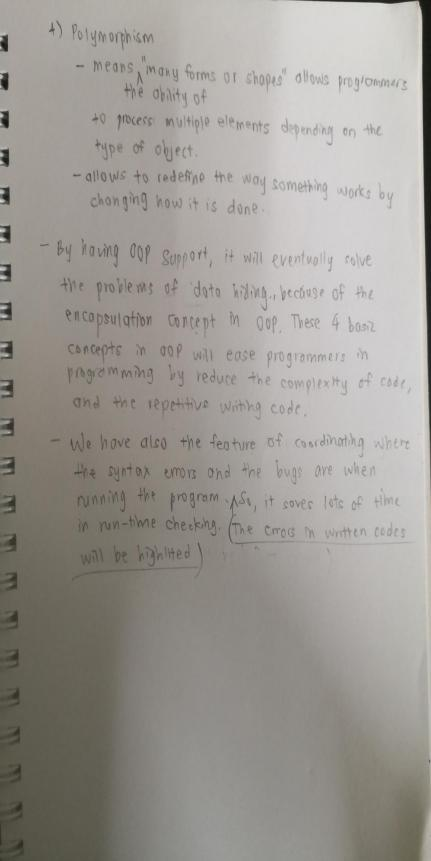 4) Polymorphism
- means "many forms or shapes" allows programmers
the ability of
to process multiple elements depending on the
type of object.
- allows to redefine the way something works by
changing how it is done.
- By having OOP support, it will eventually solve
the problems of data hiding, because of the
encapsulation concept in OOP. These 4 basic
concepts in OOP will ease programmers in
programming by reduce the complexity of code,
and the repetitive writing code.
- We have also the feature of coordinating where
the syntax errors and the bugs are when
running the program. So, it saves lots of time
in run-time checking. (The errors in written codes
will be highlited)